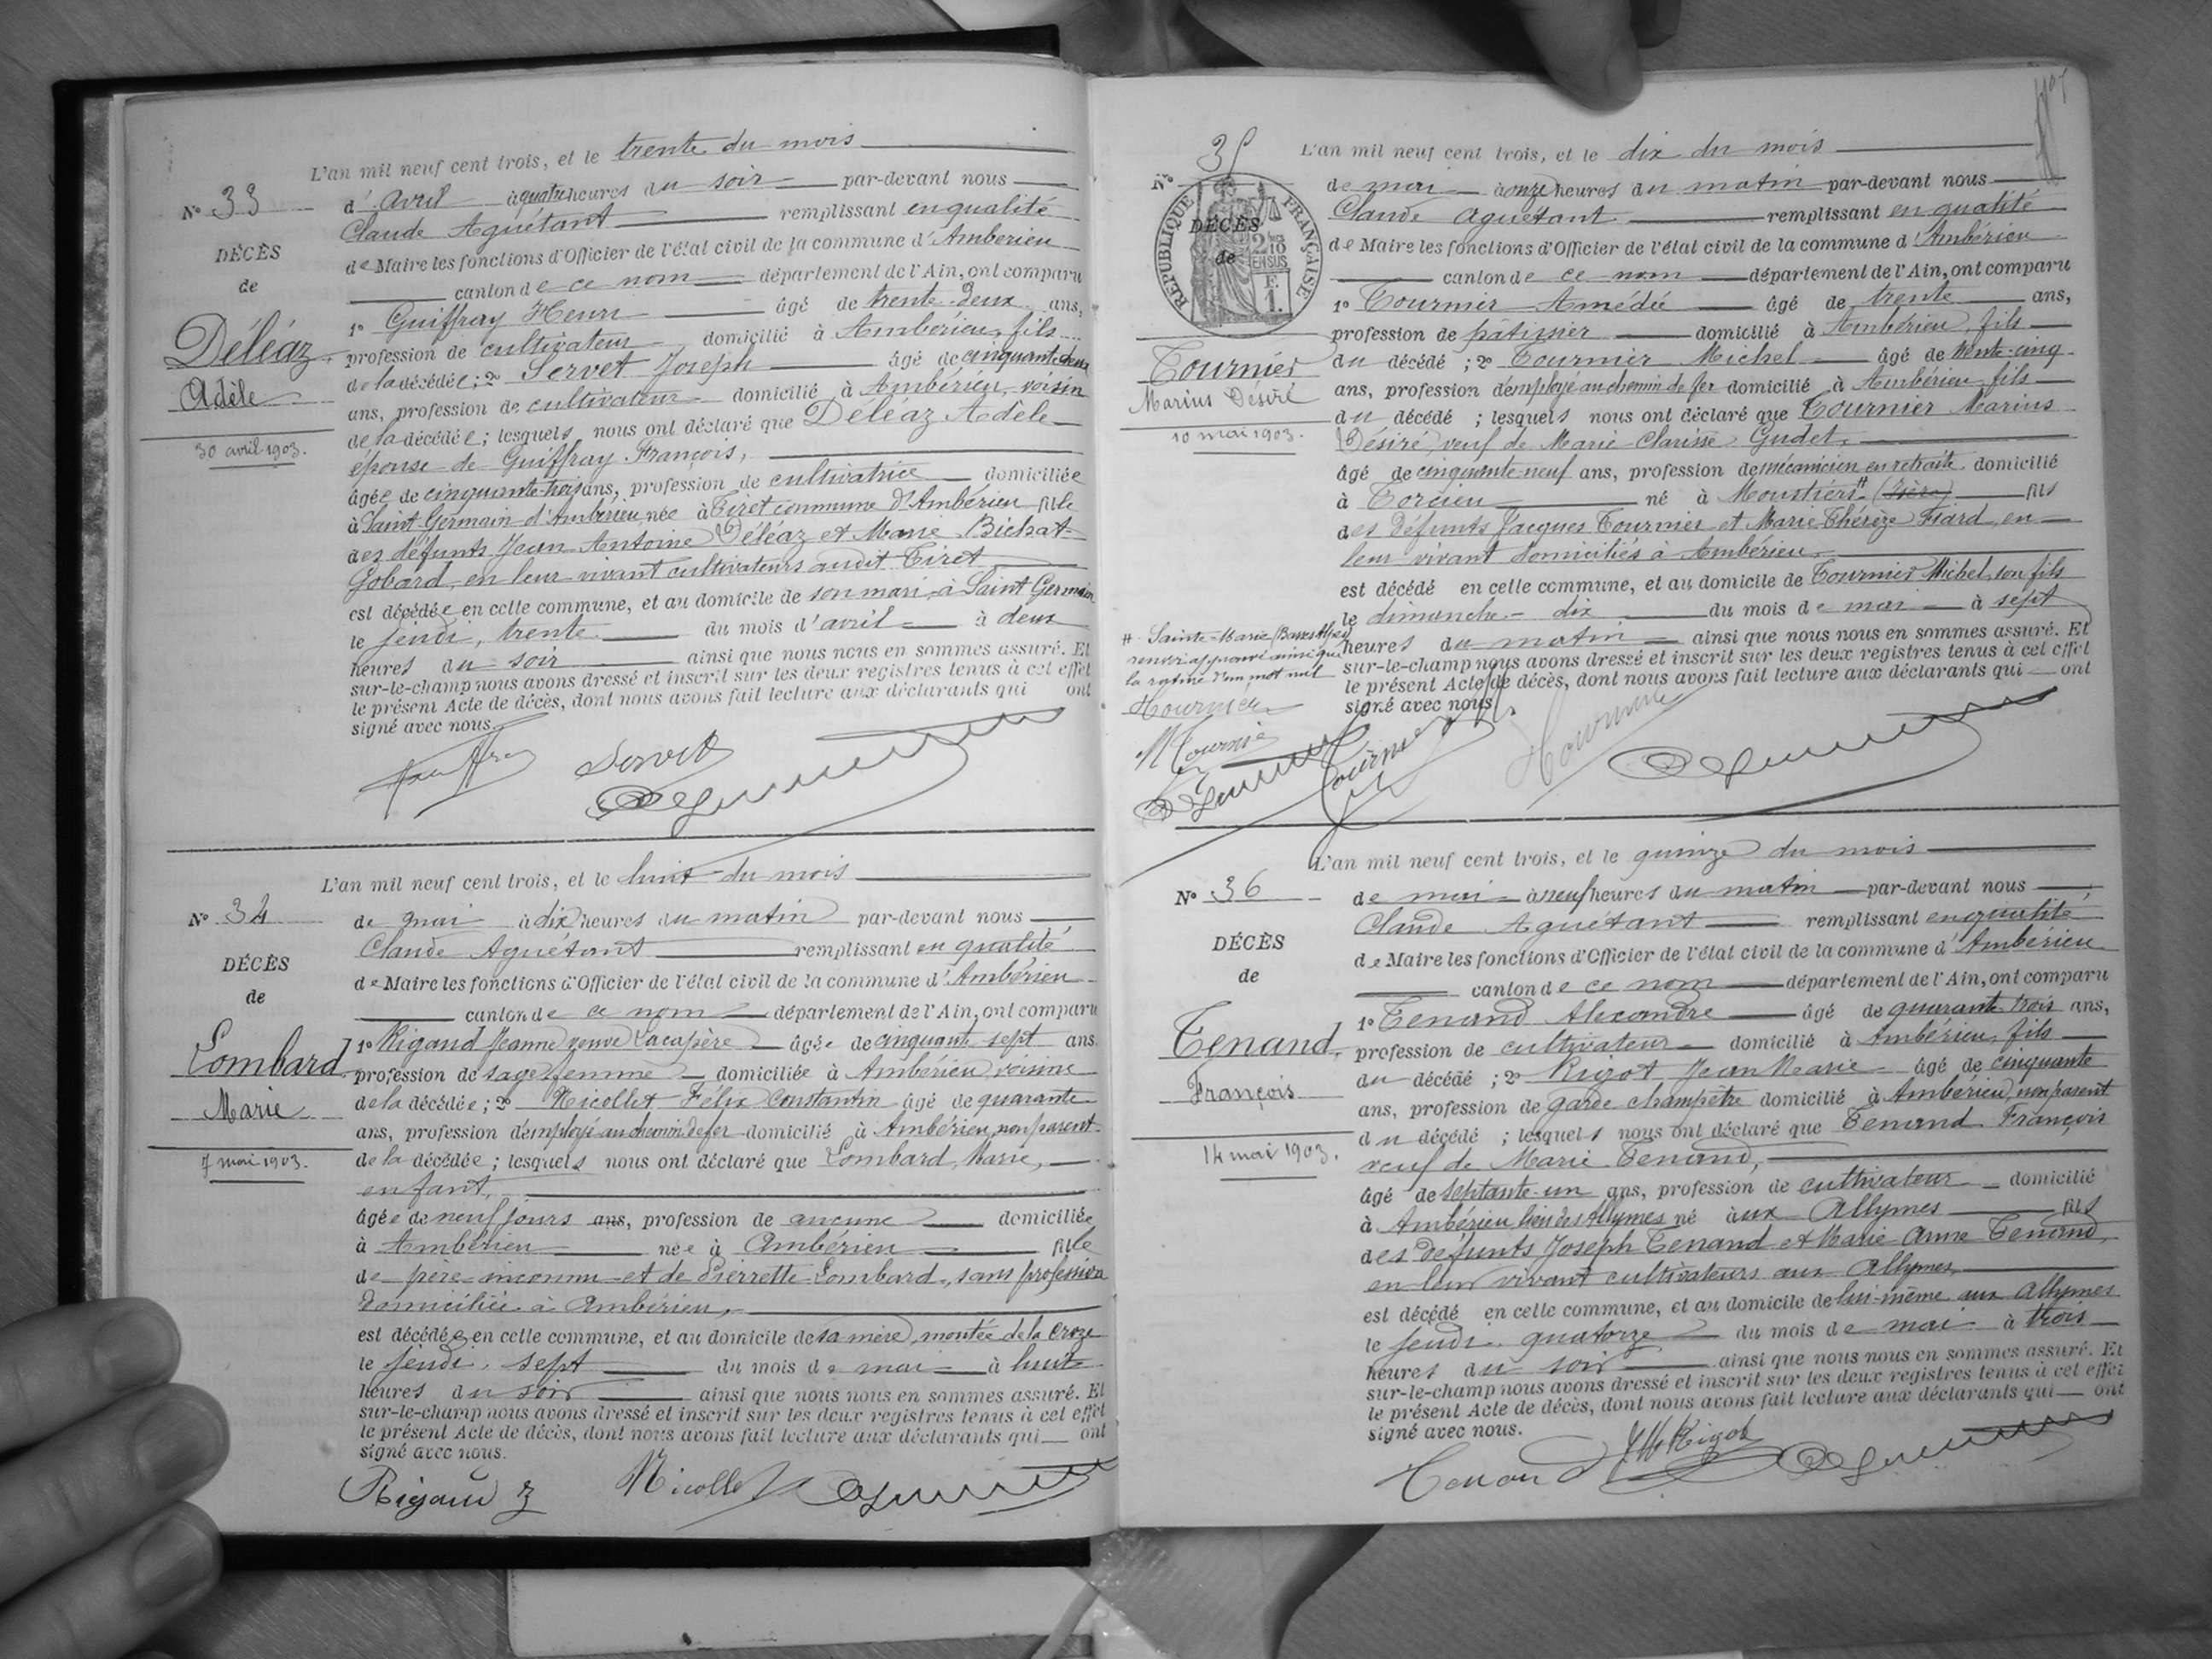 L'an mil neuf cent trois, et le trente du mois
N° 33
d'avril à quatre heures du soir par-devant nous
Claude Aguétant remplissant en qualité
DÉCÈS
de Maire les fonctions d'Officier de l'état civil de la commune d'Ambérieu
de
canton de ce nom département de l'Ain, ont comparu
1° Guiffray Henri âgé de trente-deux ans,
Déléaz
profession de cultivateur domicilié à Ambérieu, fils
de la décédée; 2° Servet Joseph âgé de cinquante-deux
Adèle
ans, profession de cultivateur domicilié à Ambérieu, voisin
de la décédée; lesquels nous ont déclaré que Déléaz Adèle
30 avril 1903.
épouse de Guiffray François,
âgée de cinquante-trois ans, profession de cultivatrice domiciliée
à Saint Germain d'Ambérieu, née à Tiret commune d'Ambérieu fille
des défunts Jean Antoine Déléaz et Marie Bichat-
Gobard, en leur vivant cultivateurs audit Tiret
est décédée en cette commune, et au domicile de son mari, à Saint Germain
le jeudi, trente du mois d'avril à deux
heures du soir ainsi que nous nous en sommes assuré. Et
sur-le-champ nous avons dressé et inscrit sur les deux registres tenus à cet effet
le présent Acte de décès, dont nous avons fait lecture aux déclarants qui ont
signé avec nous.
Servet
L'an mil neuf cent trois, et le huit du mois
N° 34
de mai à dix heures du matin par-devant nous
Claude Aguétant remplissant en qualité
DÉCÈS
de Maire les fonctions d'Officier de l'état civil de la commune d'Ambérieu
de
canton de ce nom département de l'Ain, ont comparu
1° Rigaud Jeanne veuve Lacapère âgée de cinquante-sept ans
Lombard
profession de sage-femme domiciliée à Ambérieu, voisine
de la décédée; 2° Nicollet Félix Constantin âgé de quarante
Marie
ans, profession d'employé au chemin de fer domicilié à Ambérieu, non parent
7 mai 1903.
de la décédée; lesquels nous ont déclaré que Lombard, Marie,
enfant,
âgée de neuf jours ans, profession de aucune domiciliée
à Ambérieu née à Ambérieu fille
de père inconnu et de Pierrette Lombard, sans profession
domiciliée à Ambérieu,
est décédée en cette commune, et au domicile de sa mère, montée de la Croze
le jeudi, sept du mois de mai à huit
heures du soir ainsi que nous nous en sommes assuré. Et
sur-le-champ nous avons dressé et inscrit sur les deux registres tenus à cet effet
le présent Acte de décès, dont nous avons fait lecture aux déclarants qui ont
signé avec nous.
Rigaud Nicollet
L'an mil neuf cent trois, et le dix du mois
N° 35
de mai à onze heures du matin par-devant nous
RÉPUBLIQUE FRANÇAISE
Claude Aguétant remplissant en qualité
DÉCÈS
de Maire les fonctions d'Officier de l'état civil de la commune d'Ambérieu
2/10 EN SUS
de
canton de ce nom département de l'Ain, ont comparu
1 F.
1° Tournier Amédée âgé de trente ans,
profession de pâtissier domicilié à Ambérieu, fils
Tournier
du décédé; 2° Tournier Michel âgé de trente-cinq
Marius Désiré
ans, profession d'employé au chemin de fer domicilié à Ambérieu, fils
du décédé; lesquels nous ont déclaré que Tournier Marius
10 mai 1903.
Désiré, veuf de Marie Clarisse Gudet,
âgé de cinquante-neuf ans, profession de mécanicien en retraite domicilié
à Torcieu né à Moustiers # (Isère) fils
des défunts Jacques Tournier et Marie Thérèze Fiard, en
leur vivant domiciliés à Ambérieu,
est décédé en cette commune, et au domicile de Tournier Michel, son fils
le dimanche dix du mois de mai à sept
# Sainte-Marie (Basses Alpes)
heures du matin ainsi que nous nous en sommes assuré. Et
renvoi approuvé ainsi que
sur-le-champ nous avons dressé et inscrit sur les deux registres tenus à cet effet
la rature d'un mot nul
le présent Acte de décès, dont nous avons fait lecture aux déclarants qui ont
signé avec nous.
Tournier
M Tournier
Tournier
L'an mil neuf cent trois, et le quinze du mois
N° 36
de mai à neuf heures du matin par-devant nous
Claude Aguétant remplissant en qualité
DÉCÈS
de Maire les fonctions d'Officier de l'état civil de la commune d'Ambérieu
de
canton de ce nom département de l'Ain, ont comparu
1° Tenand Alexandre âgé de quarante-trois ans,
Tenand,
profession de cultivateur domicilié à Ambérieu, fils
du décédé; 2° Rigot Jean Marie âgé de cinquante
François
ans, profession de garde champêtre domicilié à Ambérieu, non parent
du décédé; lesquels nous ont déclaré que Tenand François
14 mai 1903.
veuf de Marie Tenand,
âgé de septante-un ans, profession de cultivateur domicilié
à Ambérieu lieu des Allymes né aux Allymes fils
des défunts Joseph Tenand et Marie Anne Tenand,
en leur vivant cultivateurs aux Allymes,
est décédé en cette commune, et au domicile de lui-même aux Allymes
le jeudi, quatorze du mois de mai à trois
heures du soir ainsi que nous nous en sommes assuré. Et
sur-le-champ nous avons dressé et inscrit sur les deux registres tenus à cet effet
le présent Acte de décès, dont nous avons fait lecture aux déclarants qui ont
signé avec nous.
Tenand JM Rigot